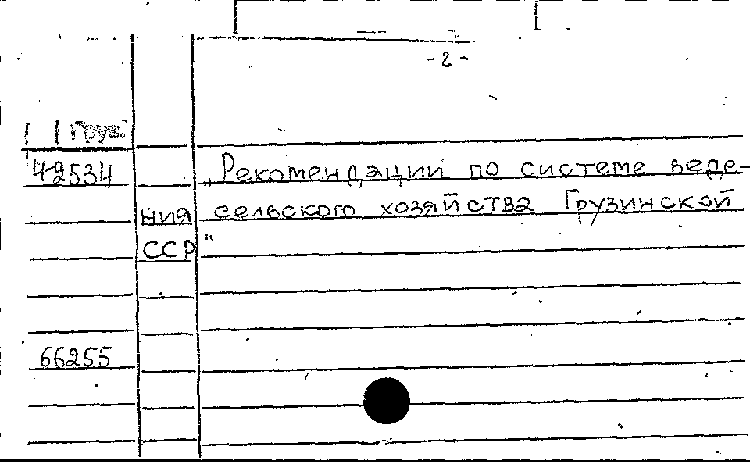 - 2 -
Груз.
42534 „Рекомендации по системе веде-
ния сельского хозяйства Грузинской
ССР"
66255